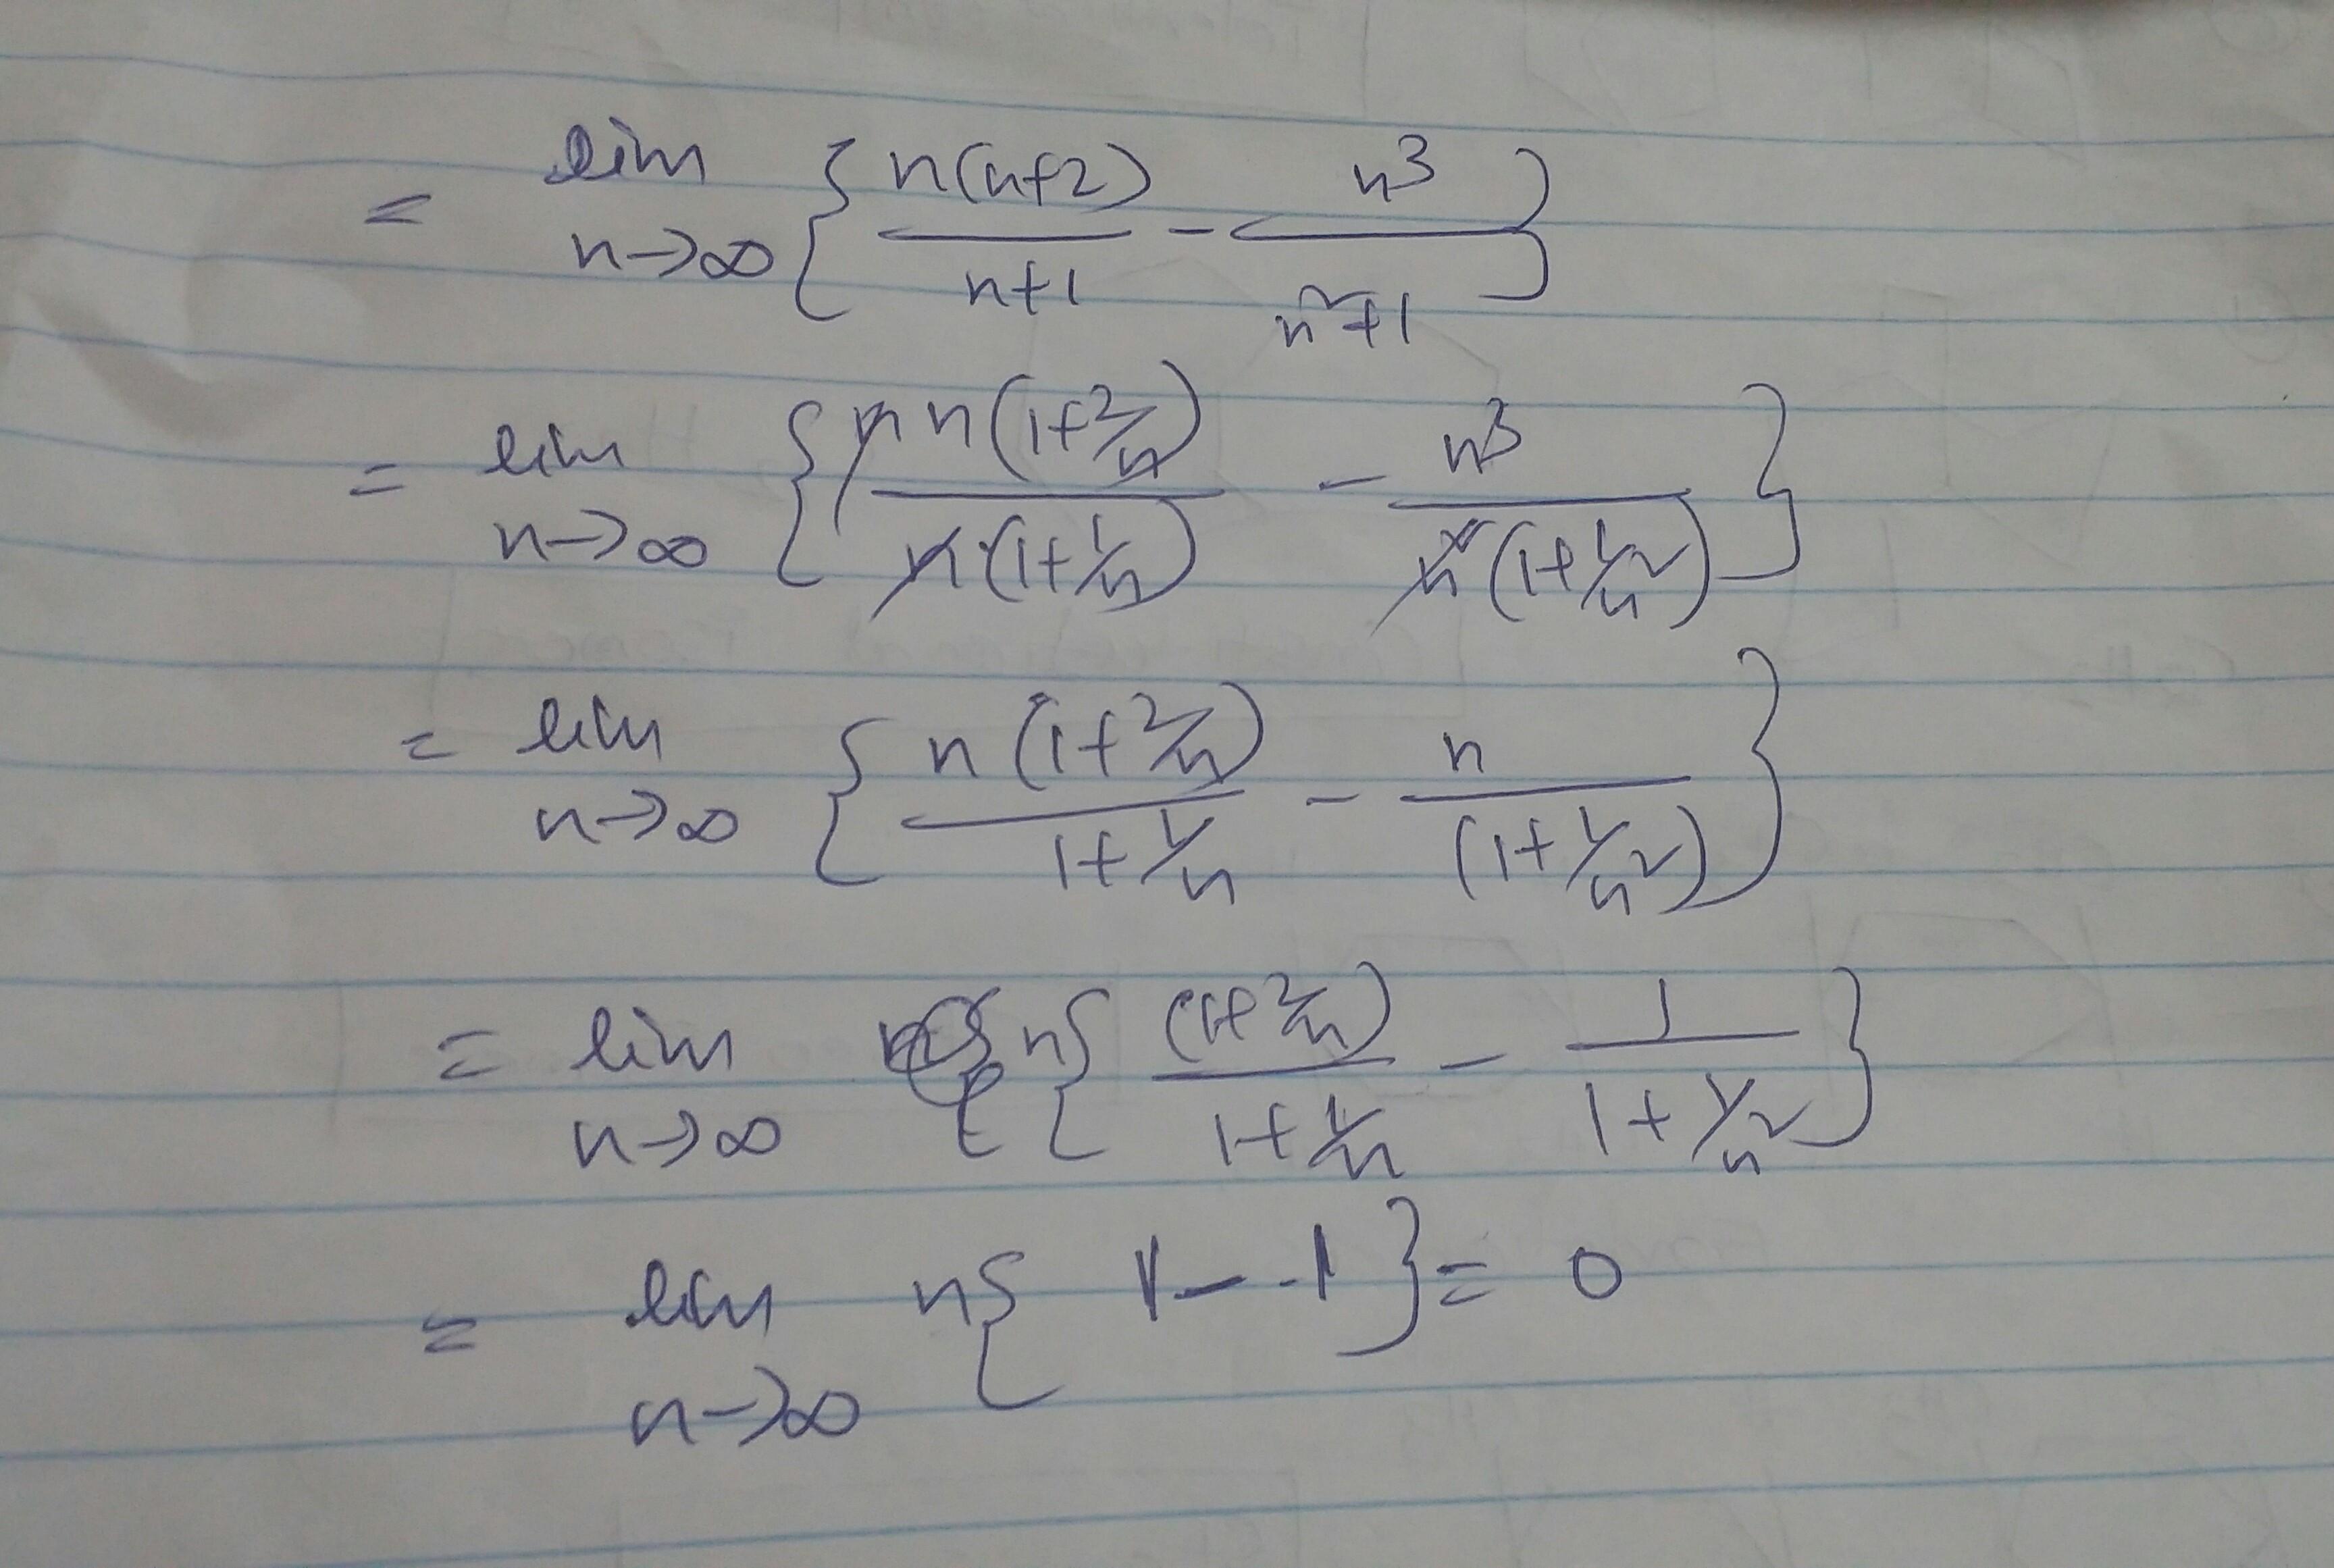 = lim n→∞ { n(n+2)/n+1 - n³/n²+1 }
= lim n→∞ { n n(1+2/n)/n(1+1/n) - n³/n²(1+1/n²) }
= lim n→∞ { n(1+2/n)/1+1/n - n/(1+1/n²) }
= lim n→∞ n{ (1+2/n)/1+1/n - 1/1+1/n² }
= lim n→∞ n{ 1 - 1 } = 0